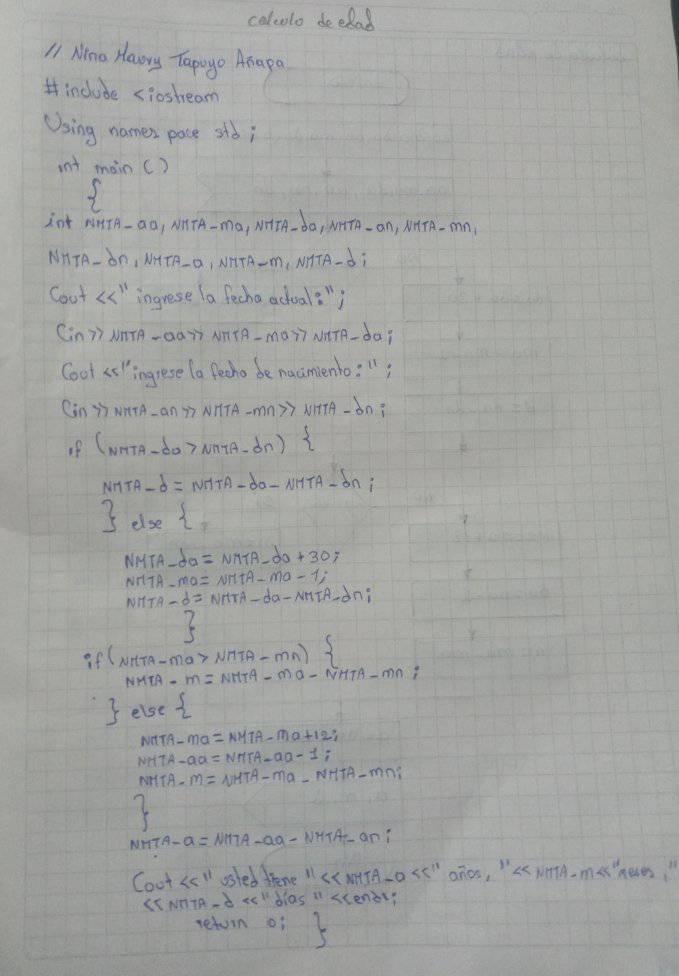 calculo de edad
// Nina Maory Tapuyo Añapa
#include <iostream
Using names pace std;
int main ()
{
int NMTA-aa, NMTA-ma, NMTA-da, NMTA-an, NMTA-mn,
NMTA-dn, NMTA-a, NMTA-m, NMTA-d;
Cout <<" ingrese la fecha actual:";
Cin>> NMTA-aa>> NMTA-ma>> NMTA-da;
Cout <<"ingrese la fecha de nacimiento:";
Cin>> NMTA-an>> NMTA-mn>> NMTA-dn;
if (NMTA-da > NMTA-dn) {
NMTA-d = NMTA-da- NMTA-dn;
} else {
NMTA-da = NMTA-da +30;
NMTA-ma= NMTA-ma -1;
NMTA-d= NMTA-da-NMTA-dn;
}
if(NMTA-ma> NMTA-mn) {
NMTA-m = NMTA-ma- NMTA-mn;
} else {
NMTA-ma = NMTA-ma+12;
NMTA-aa= NMTA-aa-1;
NMTA-m = NMTA-ma - NMTA-mn;
}
NMTA-a = NMTA-aa- NMTA-an;
Cout <<" usted tiene " << NMTA-a <<" años, " << NMTA-m << "meses,"
<< NMTA-d <<"días " <<endl;
return 0; }